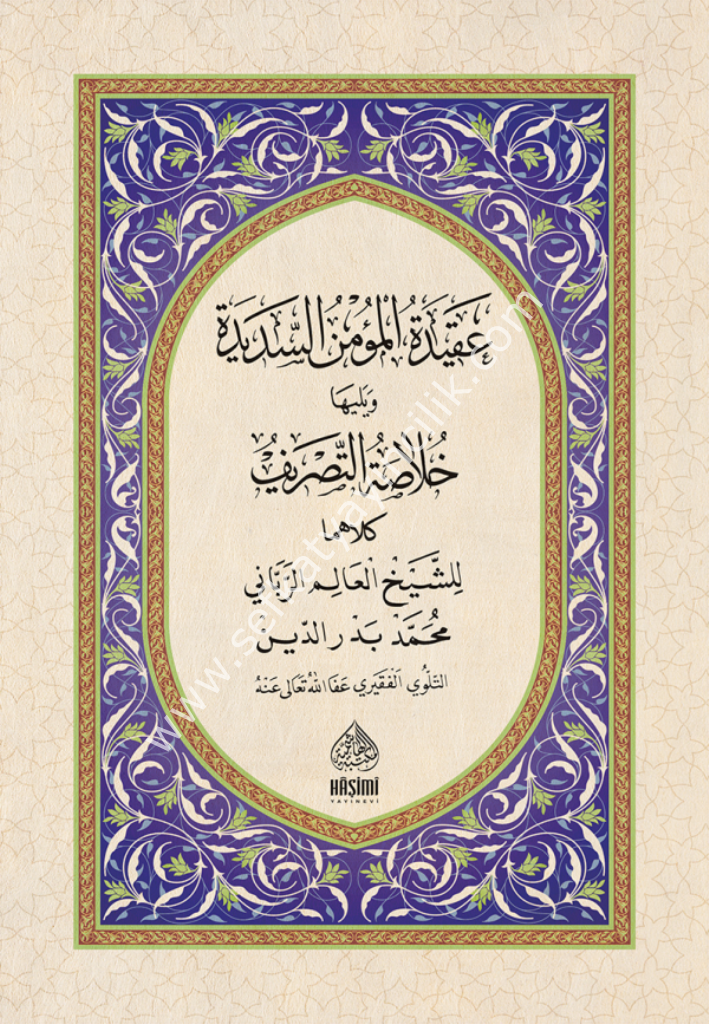 عَقِيدَةُ الْمُؤْمِنِ السَّدِيدَةِ
وَيَلِيهَا
خُلَاصَةُ التَّصْرِيفِ
كلاهما
لِلشَّيْخِ الْعَالِمِ الرَّبَّانِي
مُحَمَّد بَدْرِ الدِّين
التَّلَّوِي الْفَقِيرِي عَفَا اللهُ تَعَالَى عَنْهُ
HÂŞİMÎ
YAYINEVİ